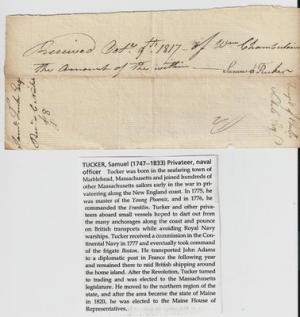 Received Octr. 9th. 1817 - of Wm. Chamberlain
the amount of the within - Samuel Tucker
TUCKER, Samuel (1747–1833) Privateer, naval
officer Tucker was born in the seafaring town of
Marblehead, Massachusetts and joined hundreds of
other Massachusetts sailors early in the war in pri-
vateering along the New England coast. In 1775, he
was master of the Young Phoenix, and in 1776, he
commanded the Franklin. Tucker and other priva-
teers aboard small vessels hoped to dart out from
the many anchorages along the coast and pounce
on British transports while avoiding Royal Navy
warships. Tucker received a commission in the Con-
tinental Navy in 1777 and eventually took command
of the frigate Boston. He transported John Adams
to a diplomatic post in France the following year
and remained there to raid British shipping around
the home island. After the Revolution, Tucker turned
to trading and was elected to the Massachusetts
legislature. He moved to the northern region of the
state, and after the area became the state of Maine
in 1820, he was elected to the Maine House of
Representatives.